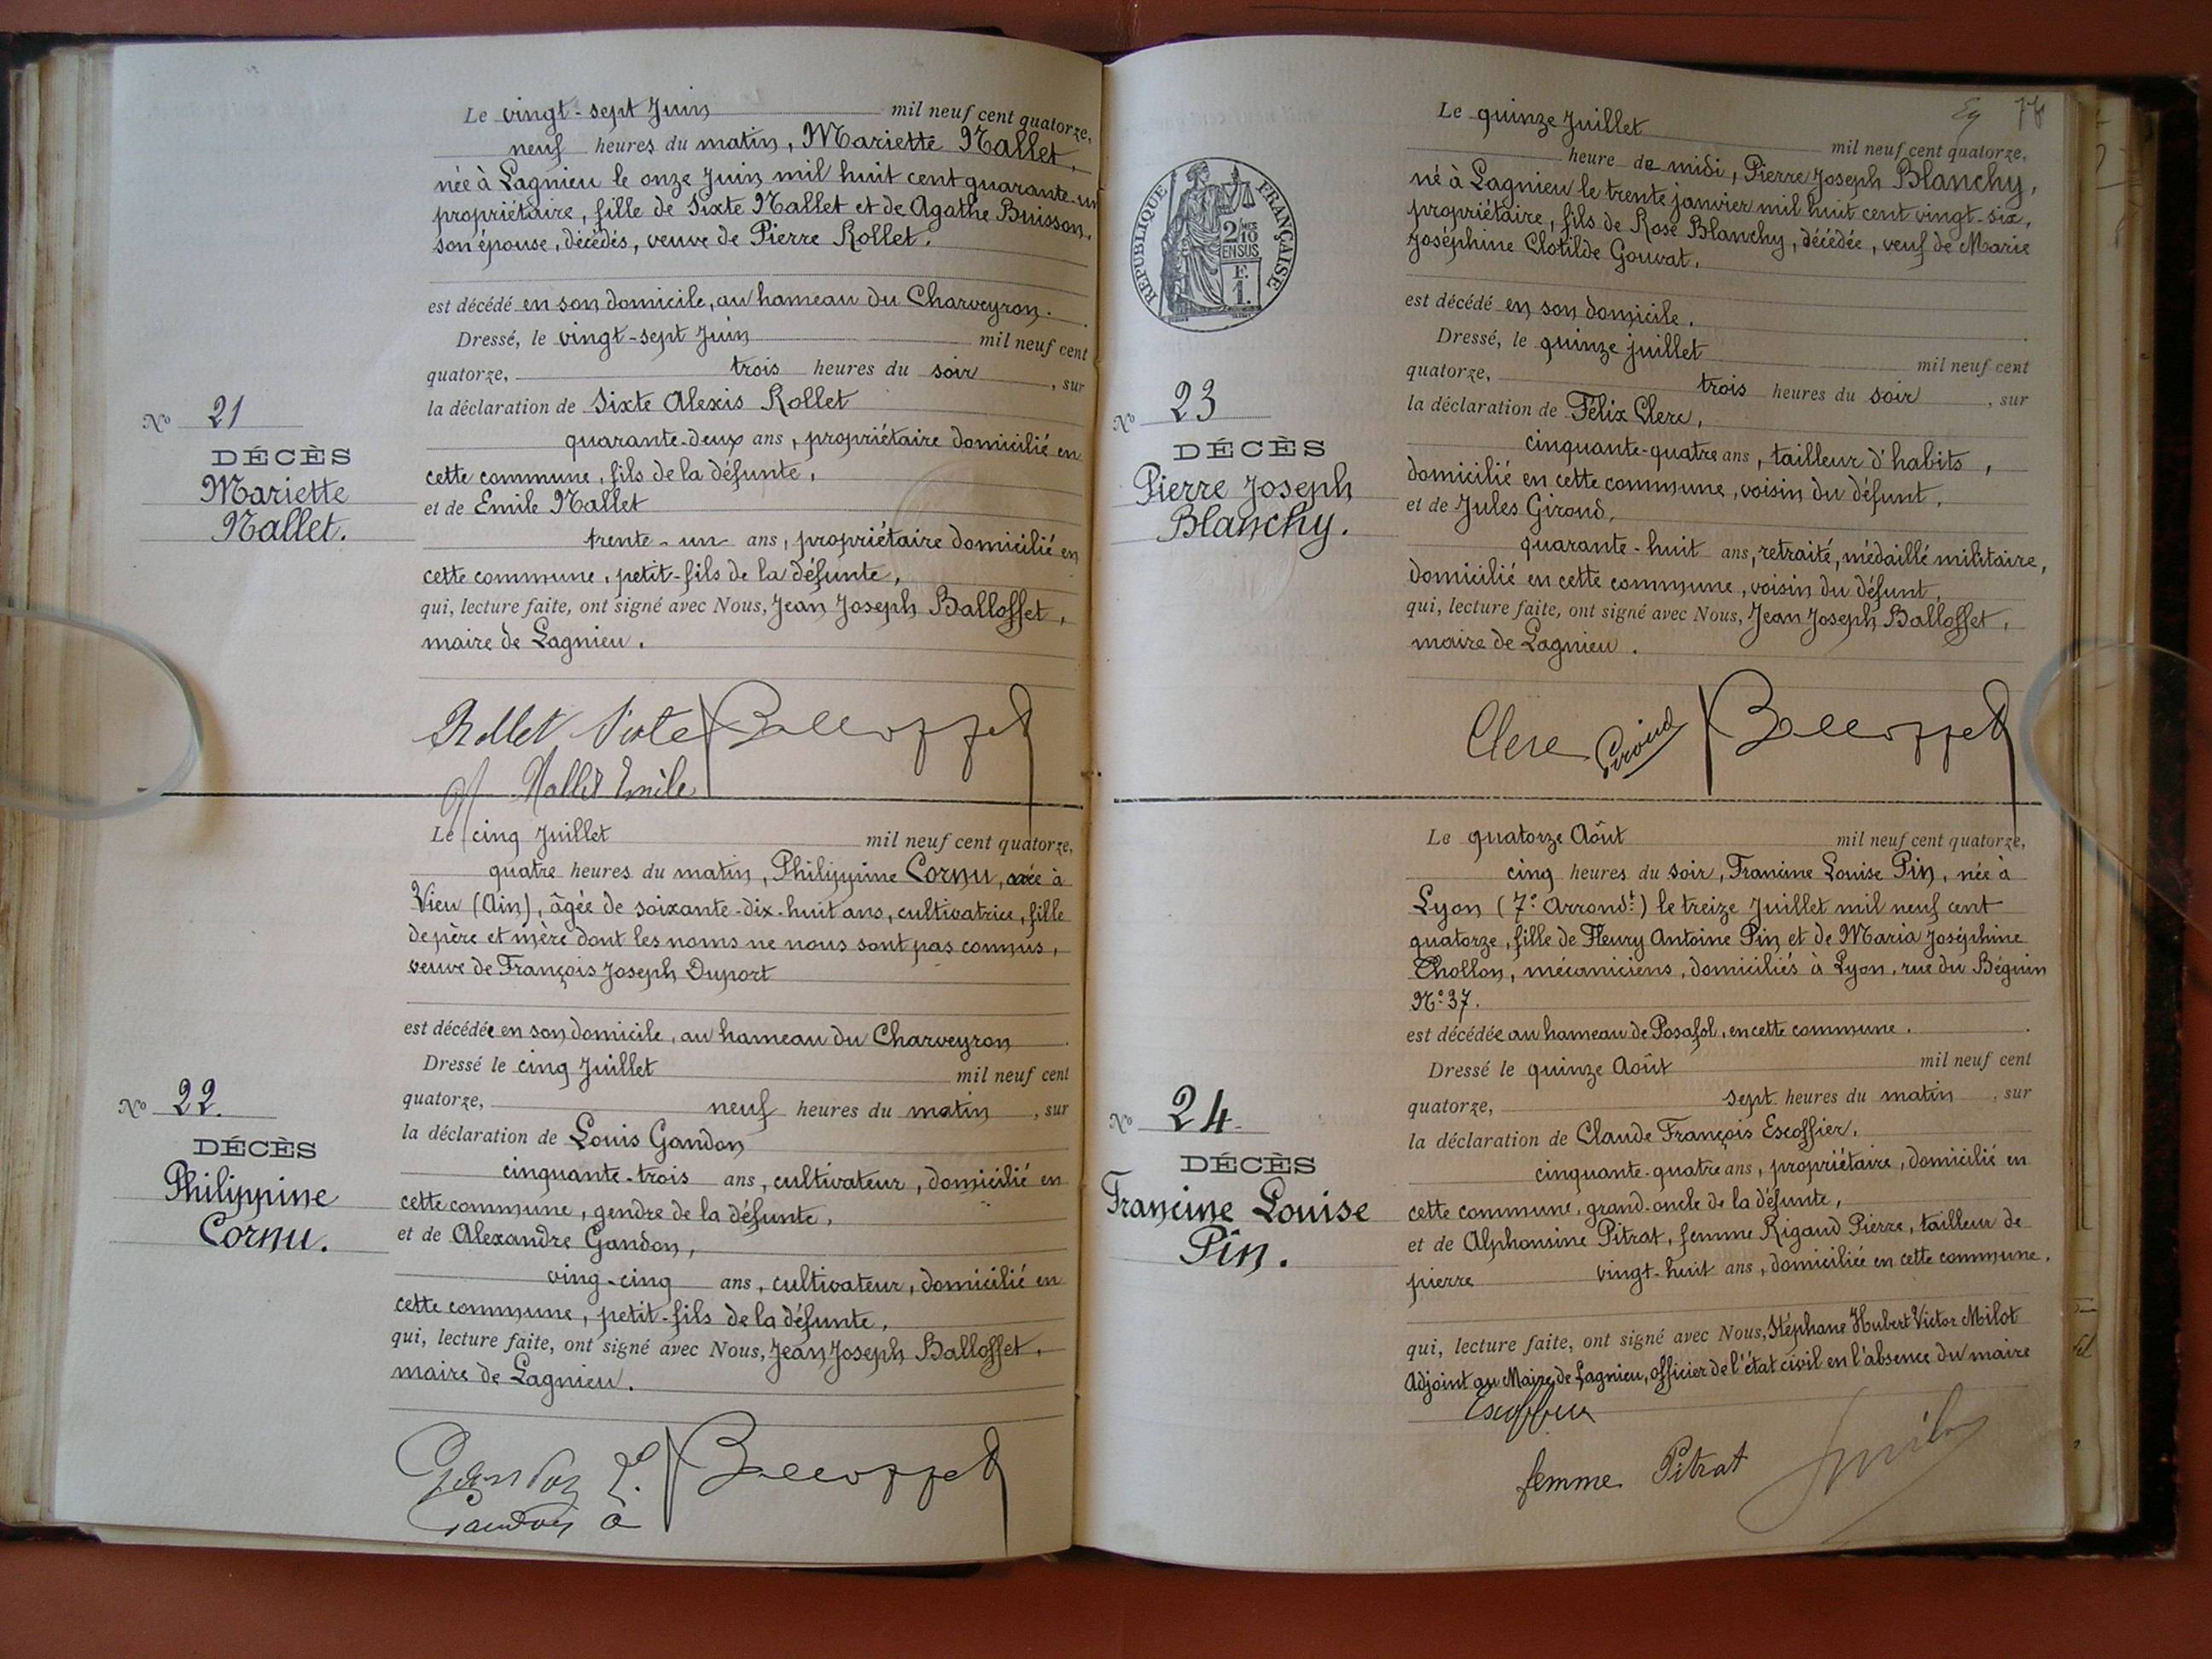 Le vingt-sept Juin mil neuf cent quatorze,
neuf heures du matin, Mariette Nallet,
née à Lagnieu le onze Juin mil huit cent quarante-un
propriétaire, fille de Sixte Nallet et de Agathe Buisson,
son épouse, décédés, veuve de Pierre Rollet.
est décédé en son domicile, au hameau du Charveyron.
Dressé, le vingt-sept Juin mil neuf cent
quatorze, trois heures du soir, sur
la déclaration de Sixte Alexis Rollet
quarante-deux ans, propriétaire domicilié en
cette commune, fils de la défunte,
et de Emile Nallet
trente-un ans, propriétaire domicilié en
cette commune, petit-fils de la défunte,
qui, lecture faite, ont signé avec Nous, Jean Joseph Balloffet,
maire de Lagnieu.
No 21
DÉCÈS
Mariette
Nallet.
Rollet Sixte Balloffet
Nallet Emile
Le cinq Juillet mil neuf cent quatorze,
quatre heures du matin, Philippine Cornu, née à
Vieu (Ain), âgée de soixante-dix-huit ans, cultivatrice, fille
de père et mère dont les noms ne nous sont pas connus,
veuve de François Joseph Duport
est décédée en son domicile, au hameau du Charveyron
Dressé le cinq Juillet mil neuf cent
quatorze, neuf heures du matin, sur
la déclaration de Louis Gandon
cinquante-trois ans, cultivateur, domicilié en
cette commune, gendre de la défunte,
et de Alexandre Gandon,
ving-cinq ans, cultivateur, domicilié en
cette commune, petit-fils de la défunte,
qui, lecture faite, ont signé avec Nous, Jean Joseph Balloffet,
maire de Lagnieu.
No 22.
DÉCÈS
Philippine
Cornu.
Gandon L. Balloffet
Gandon a
78
Le quinze Juillet mil neuf cent quatorze,
heure de midi, Pierre Joseph Blanchy,
né à Lagnieu le trente janvier mil huit cent vingt-six,
propriétaire, fils de Rose Blanchy, décédée, veuf de Marie
Joséphine Clotilde Gouvat.
est décédé en son domicile.
Dressé, le quinze juillet mil neuf cent
quatorze, trois heures du soir, sur
la déclaration de Félix Clerc,
cinquante-quatre ans, tailleur d'habits,
domicilié en cette commune, voisin du défunt,
et de Jules Giroud,
quarante-huit ans, retraité, médaillé militaire,
domicilié en cette commune, voisin du défunt,
qui, lecture faite, ont signé avec Nous, Jean Joseph Balloffet,
maire de Lagnieu.
RÉPUBLIQUE FRANÇAISE
2/10
EN SUS
1 F.
No 23
DÉCÈS
Pierre Joseph
Blanchy.
Clerc Giroud Balloffet
Le quatorze Août mil neuf cent quatorze,
cinq heures du soir, Francine Louise Pin, née à
Lyon (7e Arrondt) le treize Juillet mil neuf cent
quatorze, fille de Fleury Antoine Pin et de Maria Joséphine
Chollon, mécaniciens, domiciliés à Lyon, rue du Béguin
No 37.
est décédée au hameau de Posafol, en cette commune.
Dressé le quinze Août mil neuf cent
quatorze, sept heures du matin, sur
la déclaration de Claude François Escoffier,
cinquante-quatre ans, propriétaire, domicilié en
cette commune, grand-oncle de la défunte,
et de Alphonsine Pitrat, femme Rigaud Pierre, tailleur de
pierre vingt-huit ans, domiciliée en cette commune.
qui, lecture faite, ont signé avec Nous, Stéphane Hubert Victor Milot
Adjoint au Maire de Lagnieu, officier de l'état civil en l'absence du maire
No 24
DÉCÈS
Francine Louise
Pin.
Escoffier
femme Pitrat Smilot